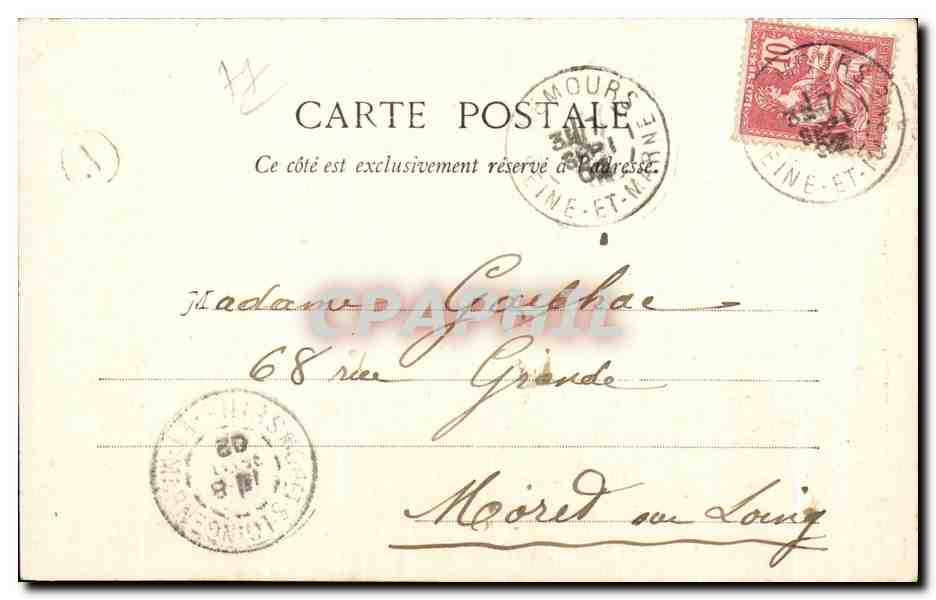 CARTE POSTALE
Ce côté est exclusivement réservé à l'adresse.
EMOURS
EINE-ET-MARNE
10
EINE-ET-M
J
CPAPHIL
Madame
68 rue Grande
Moret sur Loing
02